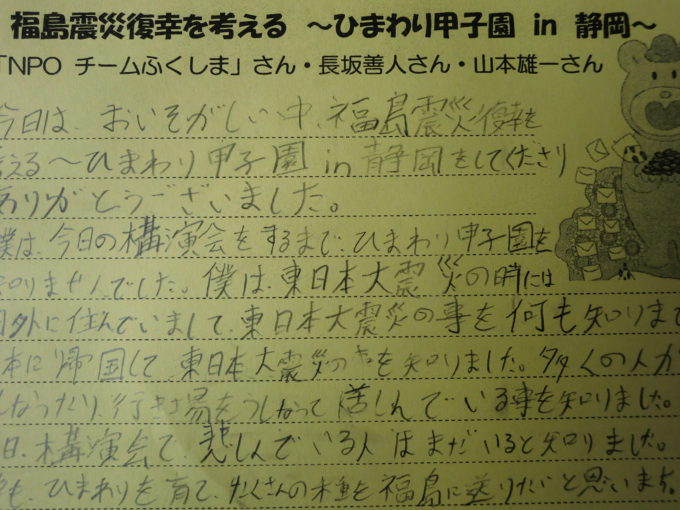 福島震災復幸を考える ～ひまわり甲子園 in 静岡～
「NPO チームふくしま」さん・長坂善人さん・山本雄一さん
今日は、おいそがしい中、福島震災復幸を
考える～ひまわり甲子園 in 静岡をしてくださり
ありがとうございました。
僕は、今日の構演会をするまで、ひまわり甲子園を
知りませんでした。僕は、東日本大震災の時には
外に住んでいまして、東日本大震災の事を何も知りませ
本に帰国して、東日本大震災の を知りました。多くの人が
なったり、行き場をうしなって 苦しんでいる事を知りました。
日、構演会で、悲しんでいる人はまだいると知りました。
も、ひまわりを育て、たくさんの種を福島に送りたいと思います。